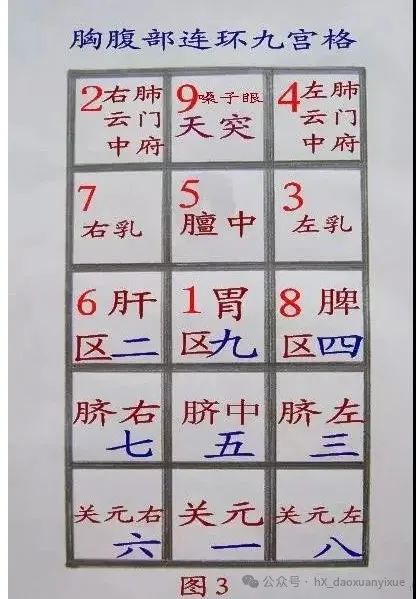 胸腹部连环九宫格
2右肺
云门
中府
9嗓子眼
天突
4左肺
云门
中府
7
右乳
5
膻中
3
左乳
6肝
区二
1胃
区九
8脾
区四
脐右
七
脐中
五
脐左
三
关元右
六
关元
一
关元左
八
图3
公众号·hX_daoxuanyixue